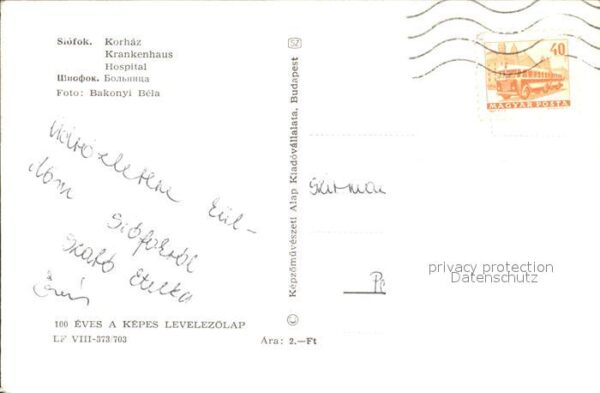 Siófok. Korház
Krankenhaus
Hospital
Шиофок. Больница
Foto: Bakonyi Béla
Üdvözletem kül-
döm Siófokról
Szabó Etelka
100 ÉVES A KÉPES LEVELEZŐLAP
LF VIII-373/703
Ára: 2.—Ft
Képzőművészeti Alap Kiadóvállalata, Budapest
40
MAGYAR POSTA
privacy protection
Datenschutz